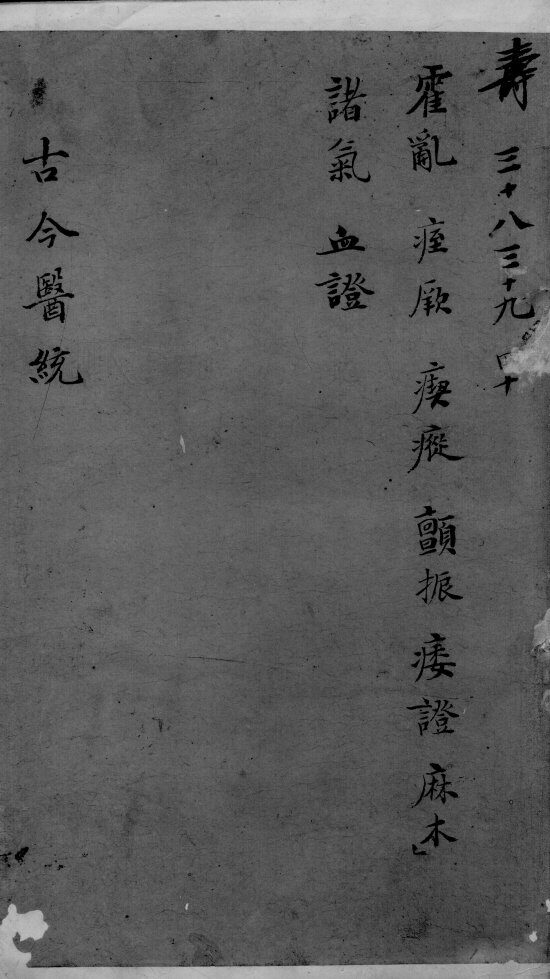 壽 三十八 三十九 四十
霍亂 痓厥 瘈瘲 顫振 痿證 麻木
諸氣 血證
古今醫統